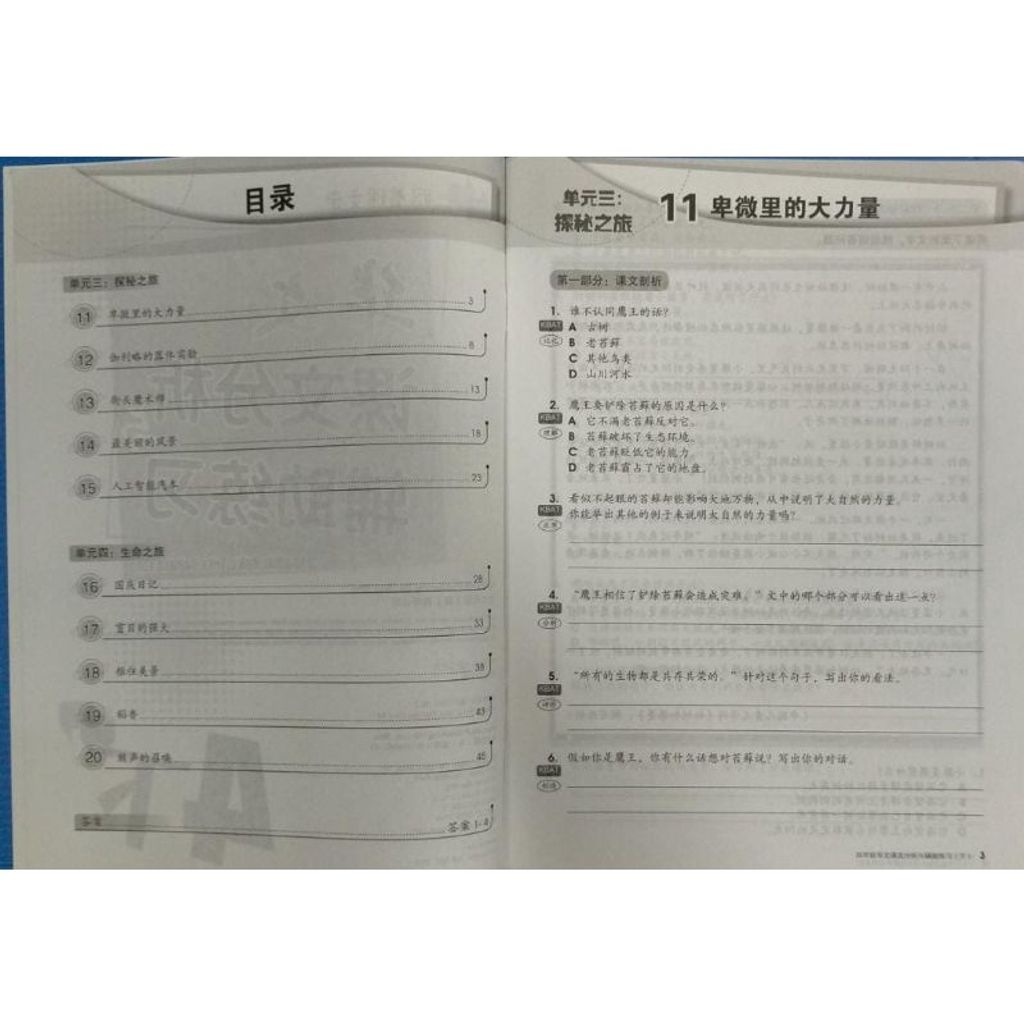 目录
单元三：探秘之旅
11 卑微里的大力量 3
12 伽利略的落体实验 8
13 街头魔术师 13
14 最美丽的风景 18
15 人工智能汽车 23
单元四：生命之旅
16 国庆日记 28
17 盲目的强大 33
18 相由美景 38
19 稻香 43
20 鼓声的召唤 45
答案 答案 1-4
单元三：
探秘之旅
11 卑微里的大力量
第一部分：课文剖析
1. 谁不认同鹰王的话？
KBAT A 古树
记忆 B 老苔藓
C 其他鸟类
D 山川河水
2. 鹰王要铲除苔藓的原因是什么？
KBAT A 它不满老苔藓反对它。
理解 B 苔藓破坏了生态环境。
C 老苔藓贬低它的能力。
D 老苔藓霸占了它的地盘。
3. 看似不起眼的苔藓却能影响大地万物，从中说明了大自然的力量。
KBAT 你能举出其他的例子来说明大自然的力量吗？
应用
4. “鹰王相信了铲除苔藓会造成灾难。”文中的哪个部分可以看出这一点？
KBAT
分析
5. “所有的生物都是共存共荣的。”针对这个句子，写出你的看法。
KBAT
评价
6. 假如你是鹰王，你有什么话想对苔藓说？写出你的对话。
KBAT
创造
3